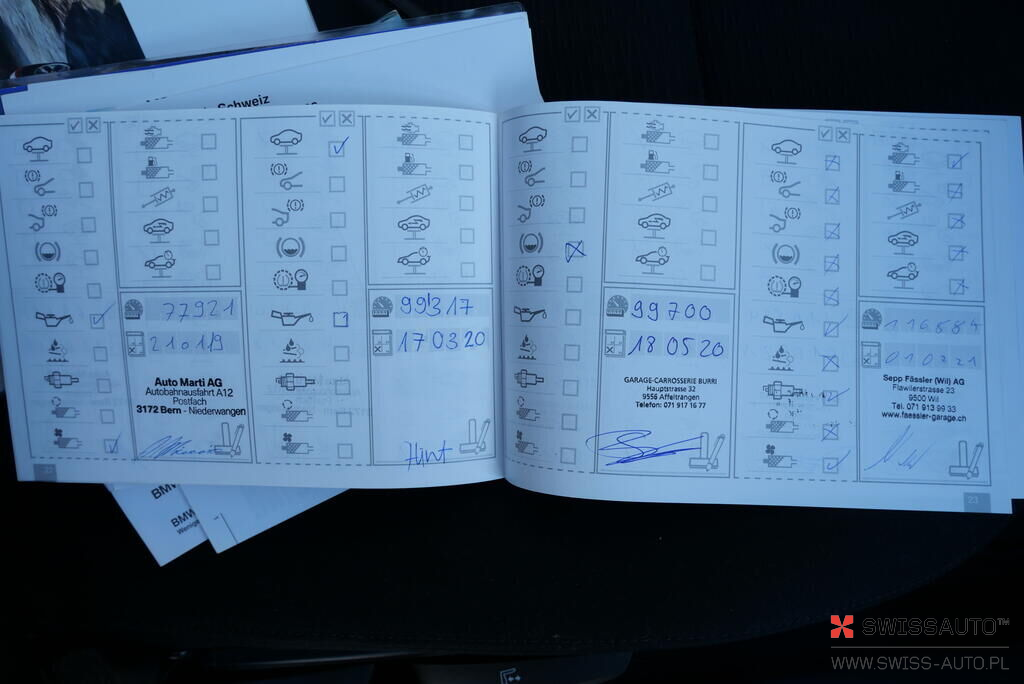 Schweiz
77921
21 01 19
Auto Marti AG
Autobahnausfahrt A12
Postfach
3172 Bern - Niederwangen
22
99317
17 03 20
99700
18 05 20
GARAGE-CARROSSERIE BURRI
Hauptstrasse 32
9556 Affeltrangen
Telefon: 071 917 16 77
116584
Sepp Fässler (Wil) AG
Flawilerstrasse 23
9500 Wil
Tel. 071 913 99 33
www.faessler-garage.ch
23
BMW
BMW
SWISSAUTO™
WWW.SWISS-AUTO.PL